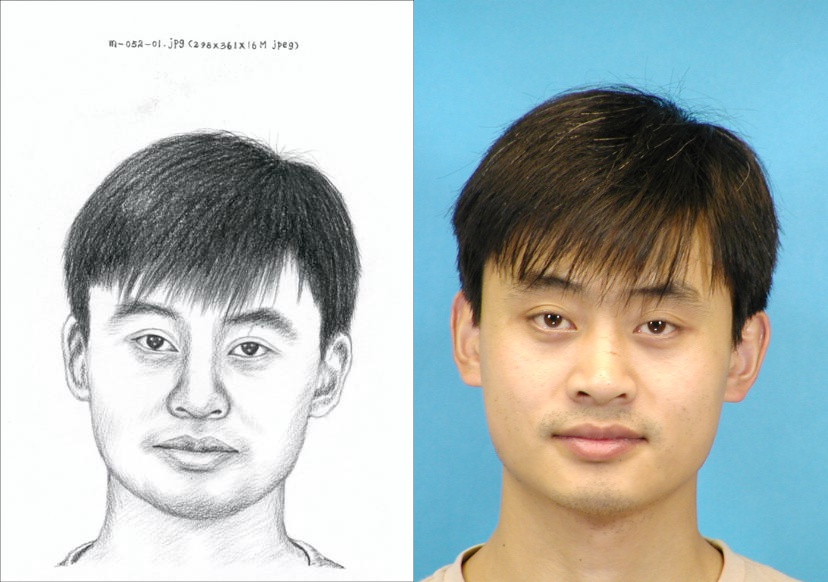 m-052-01.jpg(298x361x16M jpeg)